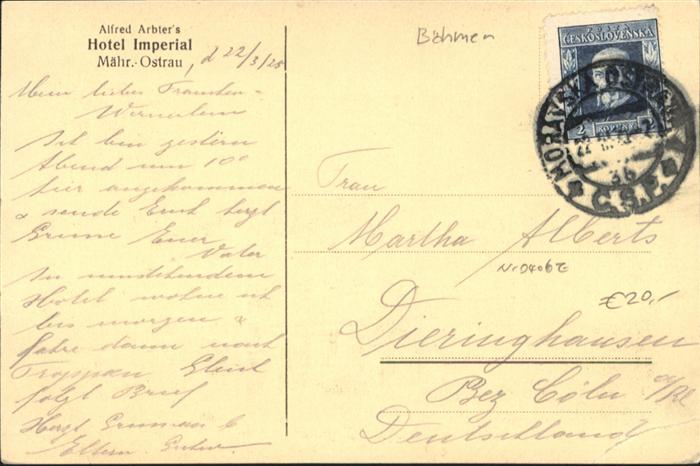 Alfred Arbter's
Hotel Imperial
Mähr.-Ostrau, d 22/3/25
Mein liebes Frauchen
Ich bin gestern
Abend um 10°
hier angekommen
& sende Euch herzl
Grüsse Euer
Vater
In umstehendem
Hotel wohne ich
bis morgen &
fahre dann nach
Troppau
folgt Brief
Herzl
Eltern
Böhmen
POŠTA
ČESKOSLOVENSKÁ
2 KORUNY 2
MORAVSKÁ OSTRAVA
22
3b
Č.S.P.
Frau
Martha Alberts
€20,-
Dieringhausen
Bez Cöln a/Rh
Deutschland